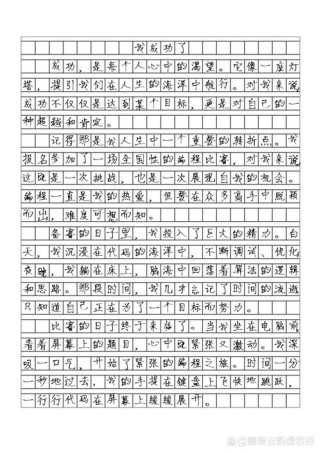 我成功了
成功，是每个人心中的渴望。它像一座灯
塔，指引我们在人生的海洋中航行。对我来说，
成功不仅仅是达到某个目标，更是对自己的一
种超越和肯定。
记得那是我人生中一个重要的转折点。我
报名参加了一场全国性的编程比赛，对我来说，
这既是一次挑战，也是一次展现自我的机会。
编程一直是我的热爱，但要在众多高手中脱颖
而出，难度可想而知。
备赛的日子里，我投入了巨大的精力。白
天，我沉浸在代码的海洋中，不断调试、优化
夜晚，我躺在床上，脑海中回荡着算法的逻辑
和思路。那段时间，我几乎忘记了时间的流逝
只知道自己正在为了一个目标而努力。
比赛的日子终于来临了。当我坐在电脑前
看着屏幕上的题目，心中既紧张又激动。我深
吸一口气，开始了紧张的编程之旅。时间一分
一秒地过去，我的手指在键盘上飞快地跳跃，
一行行代码在屏幕上缓缓展开。